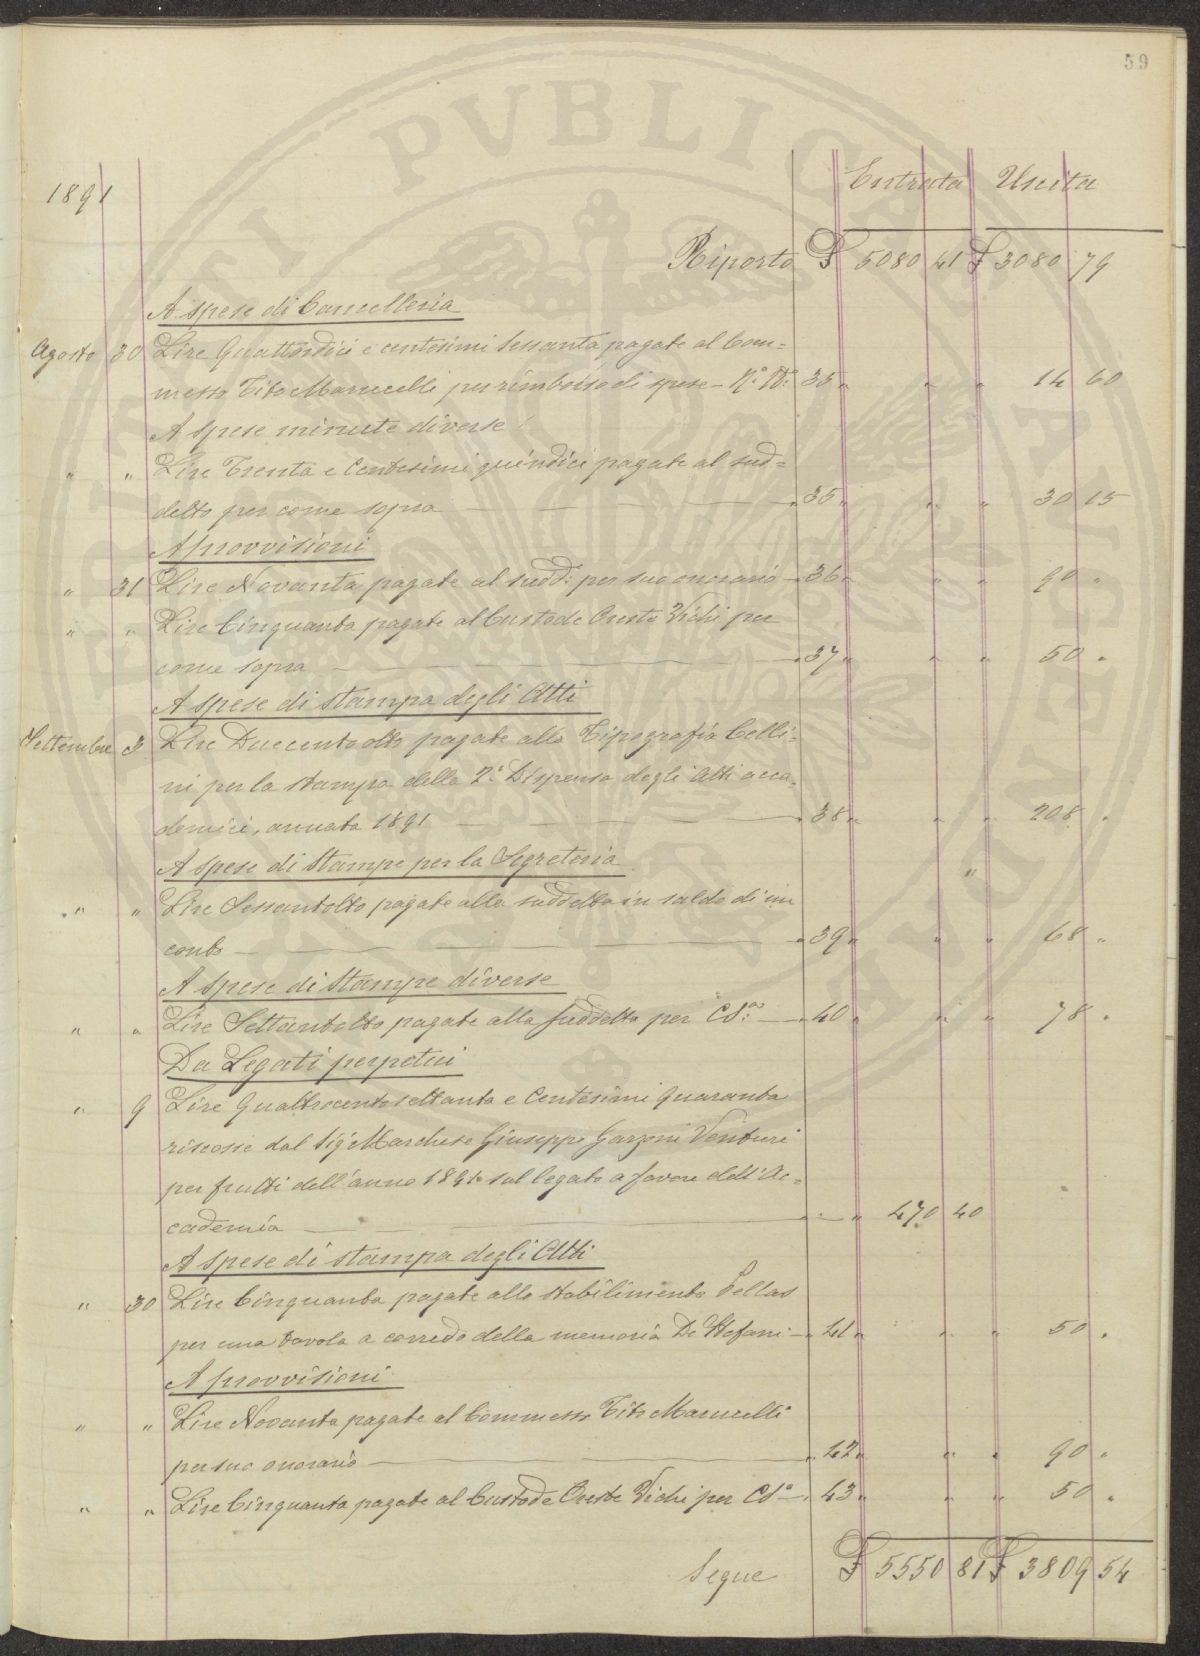 59
1891 Entrata Uscita
Riporto £ 5080 41 £ 3080 79
A spese di Cancelleria
Agosto 30 Lire Quattordici e centesimi sessanta pagate al Com=
messo Tito Marucelli per rimborso di spese - N.° 35 " " " 14 60
A spese minute diverse
" " Lire Trenta e Centesimi quindici pagate al sud=
detto per come sopra " 35 " " " 30 15
A provvisioni
" 31 Lire Novanta pagate al sudd: per suo onorario " 36 " " " 90 "
" " Lire Cinquanta pagate al Custode Oreste Vichi per
come sopra " 37 " " " 50 "
A spese di stampa degli Atti
Settembre 3 Lire Duecentootto pagate alla Tipografia Celli=
ni per la stampa della 2a Dispensa degli Atti acca=
demici, annata 1891 " 38 " " " 208 "
A spese di Stampe per la Segreteria "
" " Lire Sessantotto pagate alla suddetta in saldo di un
conto " 39 " " " 68 "
A spese di Stampe diverse
" " Lire Settantotto pagate alla suddetta per C.S.a " 40 " " " 78 "
Da Legati perpetui
" 9 Lire Quattrocentosettanta e Centesimi Quaranta
riscosse dal Sig. Marchese Giuseppe Garzoni Venturi
per frutti dell'anno 1891 sul legato a favore dell'Ac=
cademia " " 470 40
A spese di stampa degli Atti
" 30 Lire Cinquanta pagate allo Stabilimento Pellas
per una tavola a corredo della memoria De Stefani " 41 " " " 50 "
A provvisioni
" " Lire Novanta pagate al Commesso Tito Marucelli
per suo onorario " 42 " " " 90 "
" " Lire Cinquanta pagate al Custode Oreste Vichi per C.S.a " 43 " " " 50 "
Segue £ 5550 81 £ 3809 54